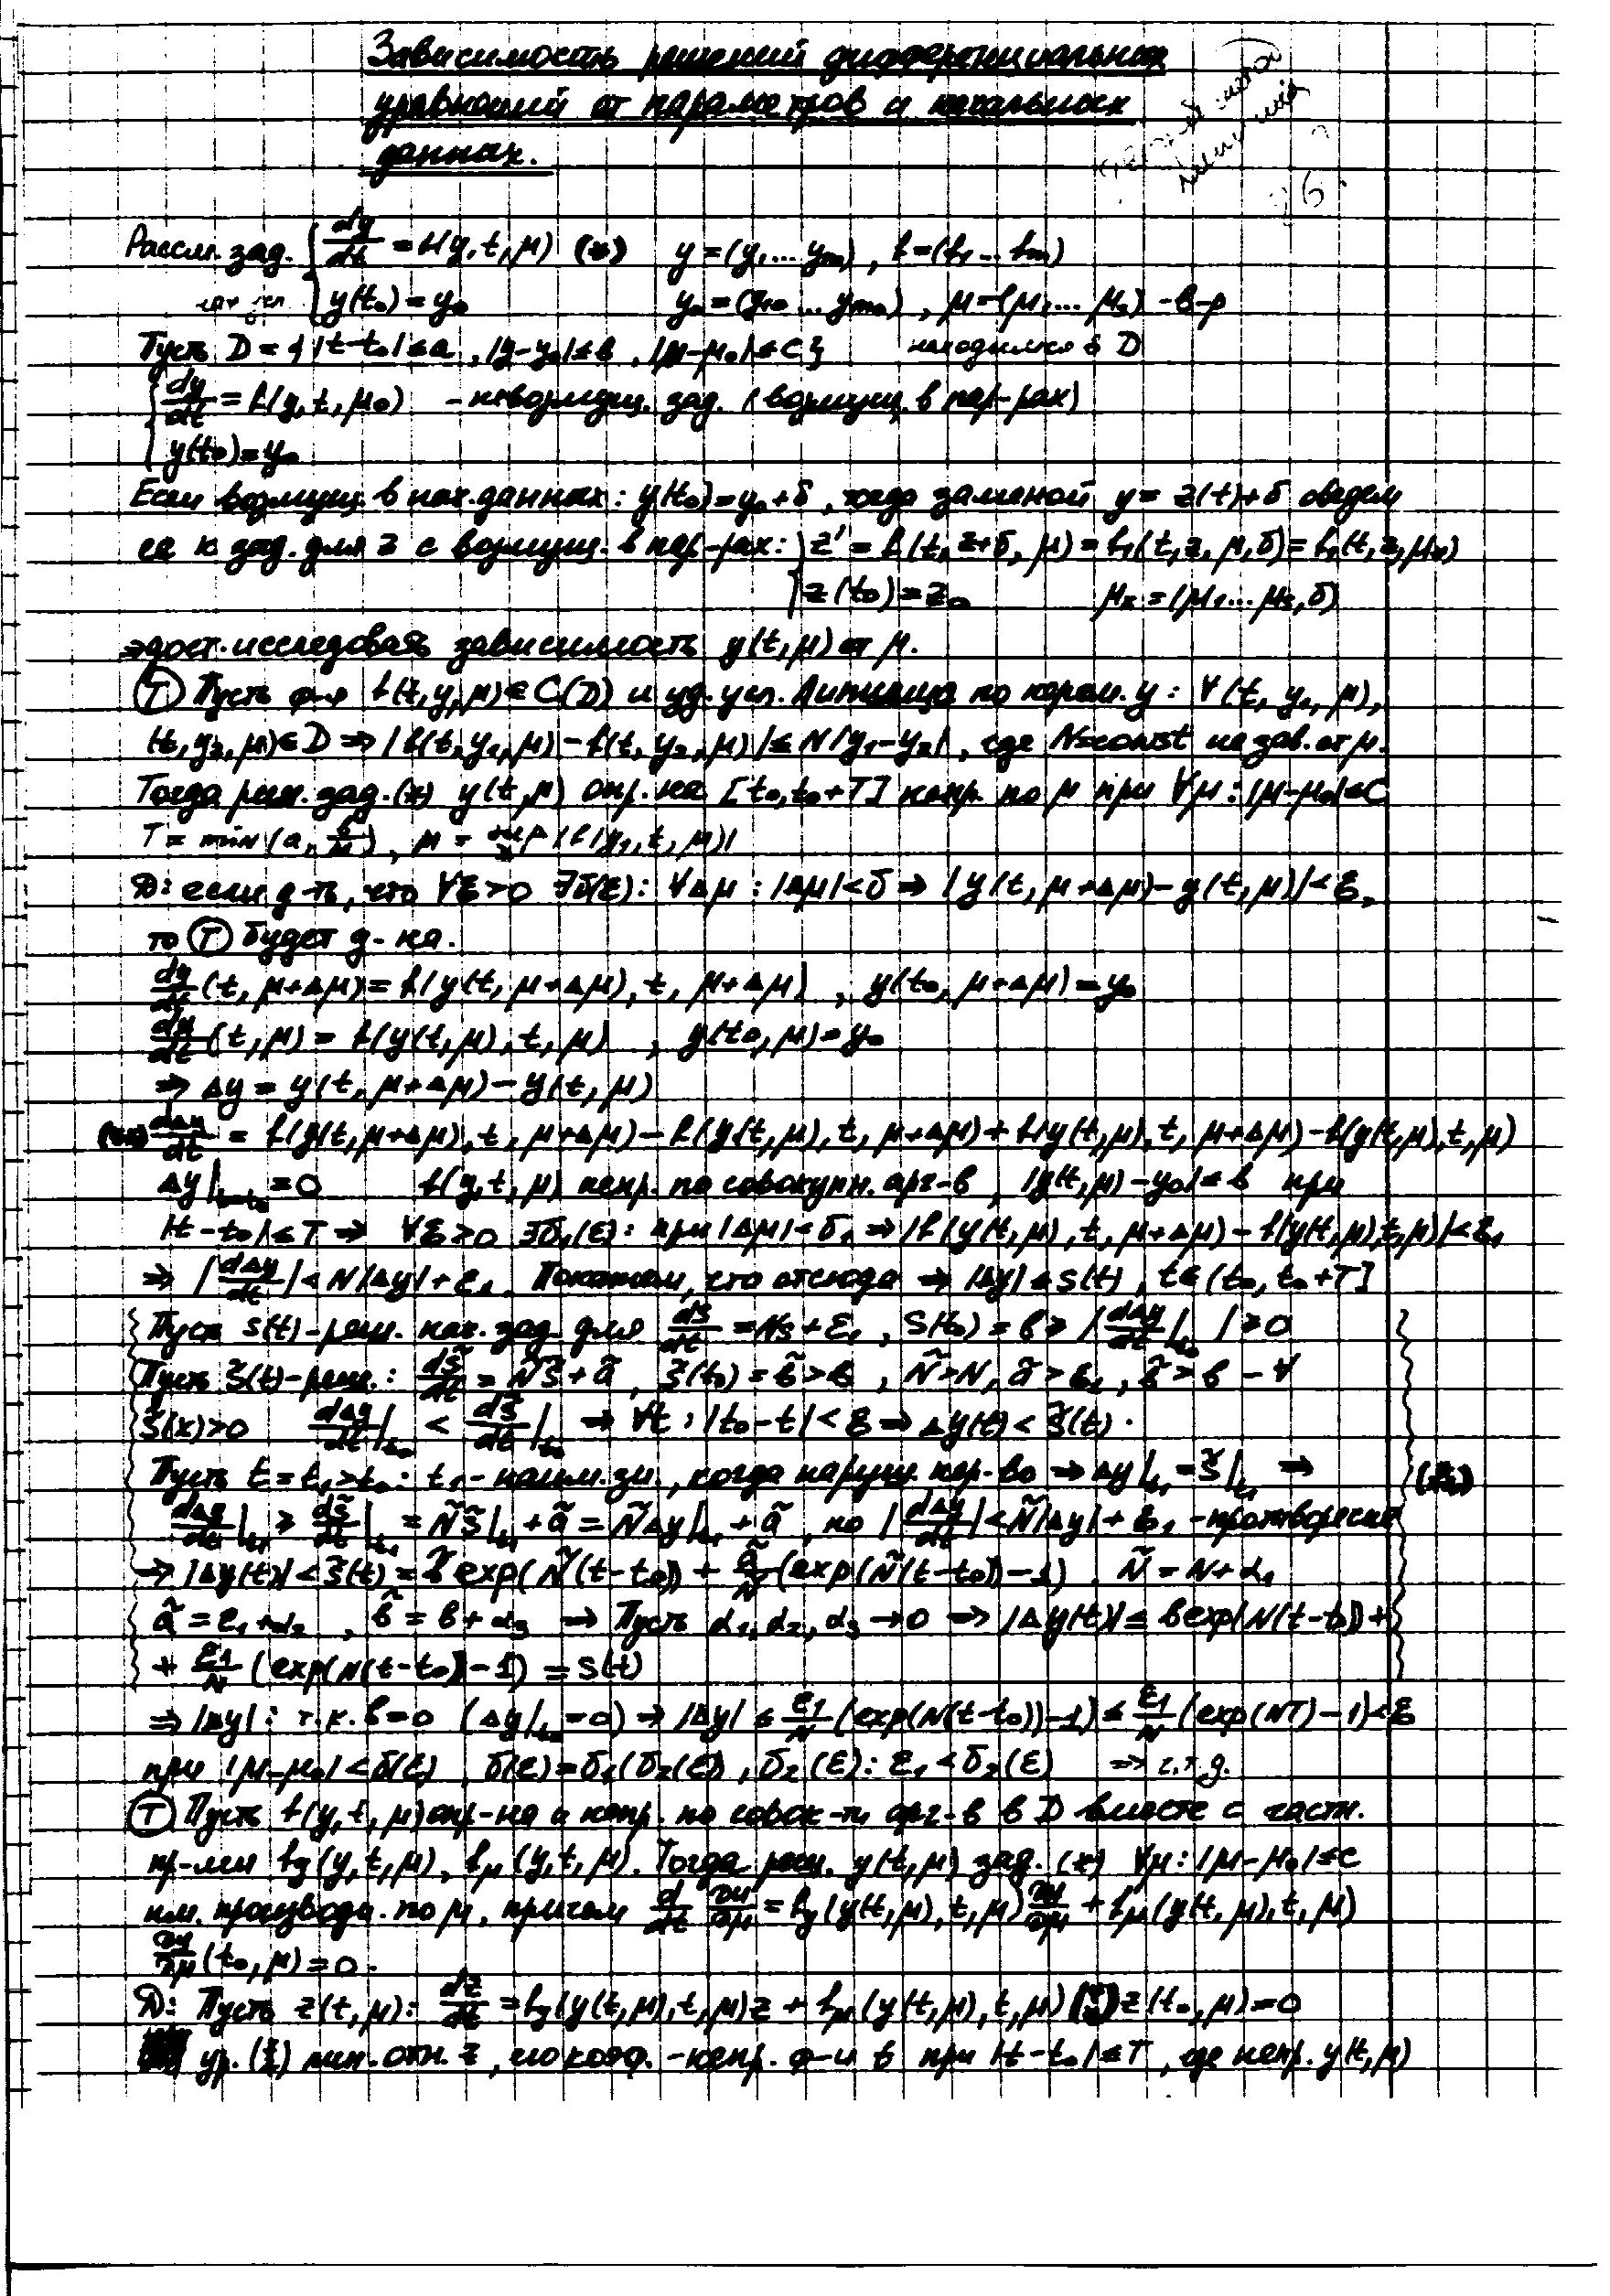 Зависимость решений дифференциальных
уравнений от параметров и начальных
данных.
Рассм. зад. { dy/dt = f(y, t, μ) (*) y = (y₁ ... yₘ), f = (f₁ ... fₘ)
y(t₀) = y₀ y₀ = (y₁₀ ... yₘ₀), μ = (μ₁, ... μₛ) - в-р
Пусть D = {|t-t₀| ≤ a, |y-y₀| ≤ b, |μ-μ₀| ≤ c} находимся в D
{ dy/dt = f(y, t, μ₀) - невозмущ. зад. (возмущ. в пар-рах)
y(t₀) = y₀
Если возмущ. в нач. данных: y(t₀) = y₀ + δ, тогда заменой y = z(t) + δ сведем
ее к зад. для z с возмущ. в пар-рах: { z' = f(t, z+δ, μ) = f₁(t, z, μ, δ) = f₁(t, z, μ*)
z(t₀) = z₀ μ* = (μ₁ ... μₛ, δ)
⇒ дост. исследовать зависимость y(t, μ) от μ.
(T) Пусть ф-я f(t, y, μ) ∈ C(D) и уд. усл. Липшица по перем. y: ∀(t, y₁, μ),
(t, y₂, μ) ∈ D ⇒ |f(t, y₁, μ) - f(t, y₂, μ)| ≤ N|y₁-y₂|, где N=const не зав. от μ.
Тогда реш. зад. (*) y(t, μ) опр. на [t₀, t₀+T] непр. по μ при ∀μ: |μ-μ₀| ≤ C
T = min(a, b/M), M = sup |f(y, t, μ)|
Д: если д-ть, что ∀ε>0 ∃δ(ε): ∀Δμ: |Δμ|<δ ⇒ |y(t, μ+Δμ) - y(t, μ)| < ε,
то (T) будет д-на.
dy/dt (t, μ+Δμ) = f(y(t, μ+Δμ), t, μ+Δμ), y(t₀, μ+Δμ) = y₀
dy/dt (t, μ) = f(y(t, μ), t, μ), y(t₀, μ) = y₀
⇒ Δy = y(t, μ+Δμ) - y(t, μ)
(**) dΔy/dt = f(y(t, μ+Δμ), t, μ+Δμ) - f(y(t, μ), t, μ+Δμ) + f(y(t, μ), t, μ+Δμ) - f(y(t, μ), t, μ)
Δy|t=t₀ = 0 f(y, t, μ) непр. по совокупн. арг-в, |y(t, μ) - y₀| ≤ b при
|t-t₀| ≤ T ⇒ ∀ε>0 ∃δ₁(ε): при |Δμ|<δ₁ ⇒ |f(y(t, μ), t, μ+Δμ) - f(y(t, μ), t, μ)| < ε₁
⇒ |dΔy/dt| < N|Δy| + ε₁. Покажем, что отсюда ⇒ |Δy| ≤ s(t), t ∈ (t₀, t₀+T]
Пусть s(t) - реш. нач. зад. для ds/dt = Ns + ε₁, s(t₀) = b ≥ |dΔy/dt|t₀| ≥ 0
Пусть s̃(t) - реш.: ds̃/dt = Ñs̃ + ã, s̃(t₀) = b̃ > b, Ñ > N, ã > ε₁, b̃ > b - ∀
s̃(x) > 0 dΔy/dt|t₀ < ds̃/dt|t₀ ⇒ ∀t: |t₀-t| < ε ⇒ Δy(t) < s̃(t).
Пусть t = t₁ > t₀: t₁ - наим. зн., когда наруш. нер-во ⇒ Δy|t₁ = s̃|t₁ ⇒
dΔy/dt|t₁ ≥ ds̃/dt|t₁ = Ñs̃|t₁ + ã = ÑΔy|t₁ + ã, но |dΔy/dt| < Ñ|Δy| + ε₁ - противоречие
⇒ |Δy(t)| < s̃(t) = b̃ exp(Ñ(t-t₀)) + ã/Ñ (exp(Ñ(t-t₀)) - 1). Ñ = N + α₁
ã = ε₁ + α₂, b̃ = b + α₃ ⇒ Пусть α₁, α₂, α₃ → 0 ⇒ |Δy(t)| ≤ b exp(N(t-t₀)) +
+ ε₁/N (exp(N(t-t₀)) - 1) = s(t)
⇒ |Δy|: т.к. b=0 (Δy|t₀ = 0) ⇒ |Δy| ≤ ε₁/N (exp(N(t-t₀)) - 1) ≤ ε₁/N (exp(NT) - 1) < ε
при |μ-μ₀| < δ(ε), δ(ε) = δ₁(δ₂(ε)), δ₂(ε): ε₁ < δ₂(ε) ⇒ ч.т.д.
(T) Пусть f(y, t, μ) опр-на и непр. по совок-ти арг-в в D вместе с частн.
пр-ми f_y(y, t, μ), f_μ(y, t, μ). Тогда реш. y(t, μ) зад. (*) ∀μ: |μ-μ₀| ≤ c
им. производн. по μ, причем d/dt ∂y/∂μ = f_y(y(t, μ), t, μ) ∂y/∂μ + f_μ(y(t, μ), t, μ)
∂y/∂μ (t₀, μ) = 0.
Д: Пусть z(t, μ): dz/dt = f_y(y(t, μ), t, μ)z + f_μ(y(t, μ), t, μ) z(t₀, μ) = 0
ур. лин. отн. z, его коэф. - непр. ф-и t при |t-t₀| ≤ T, где непр. y(t, μ)